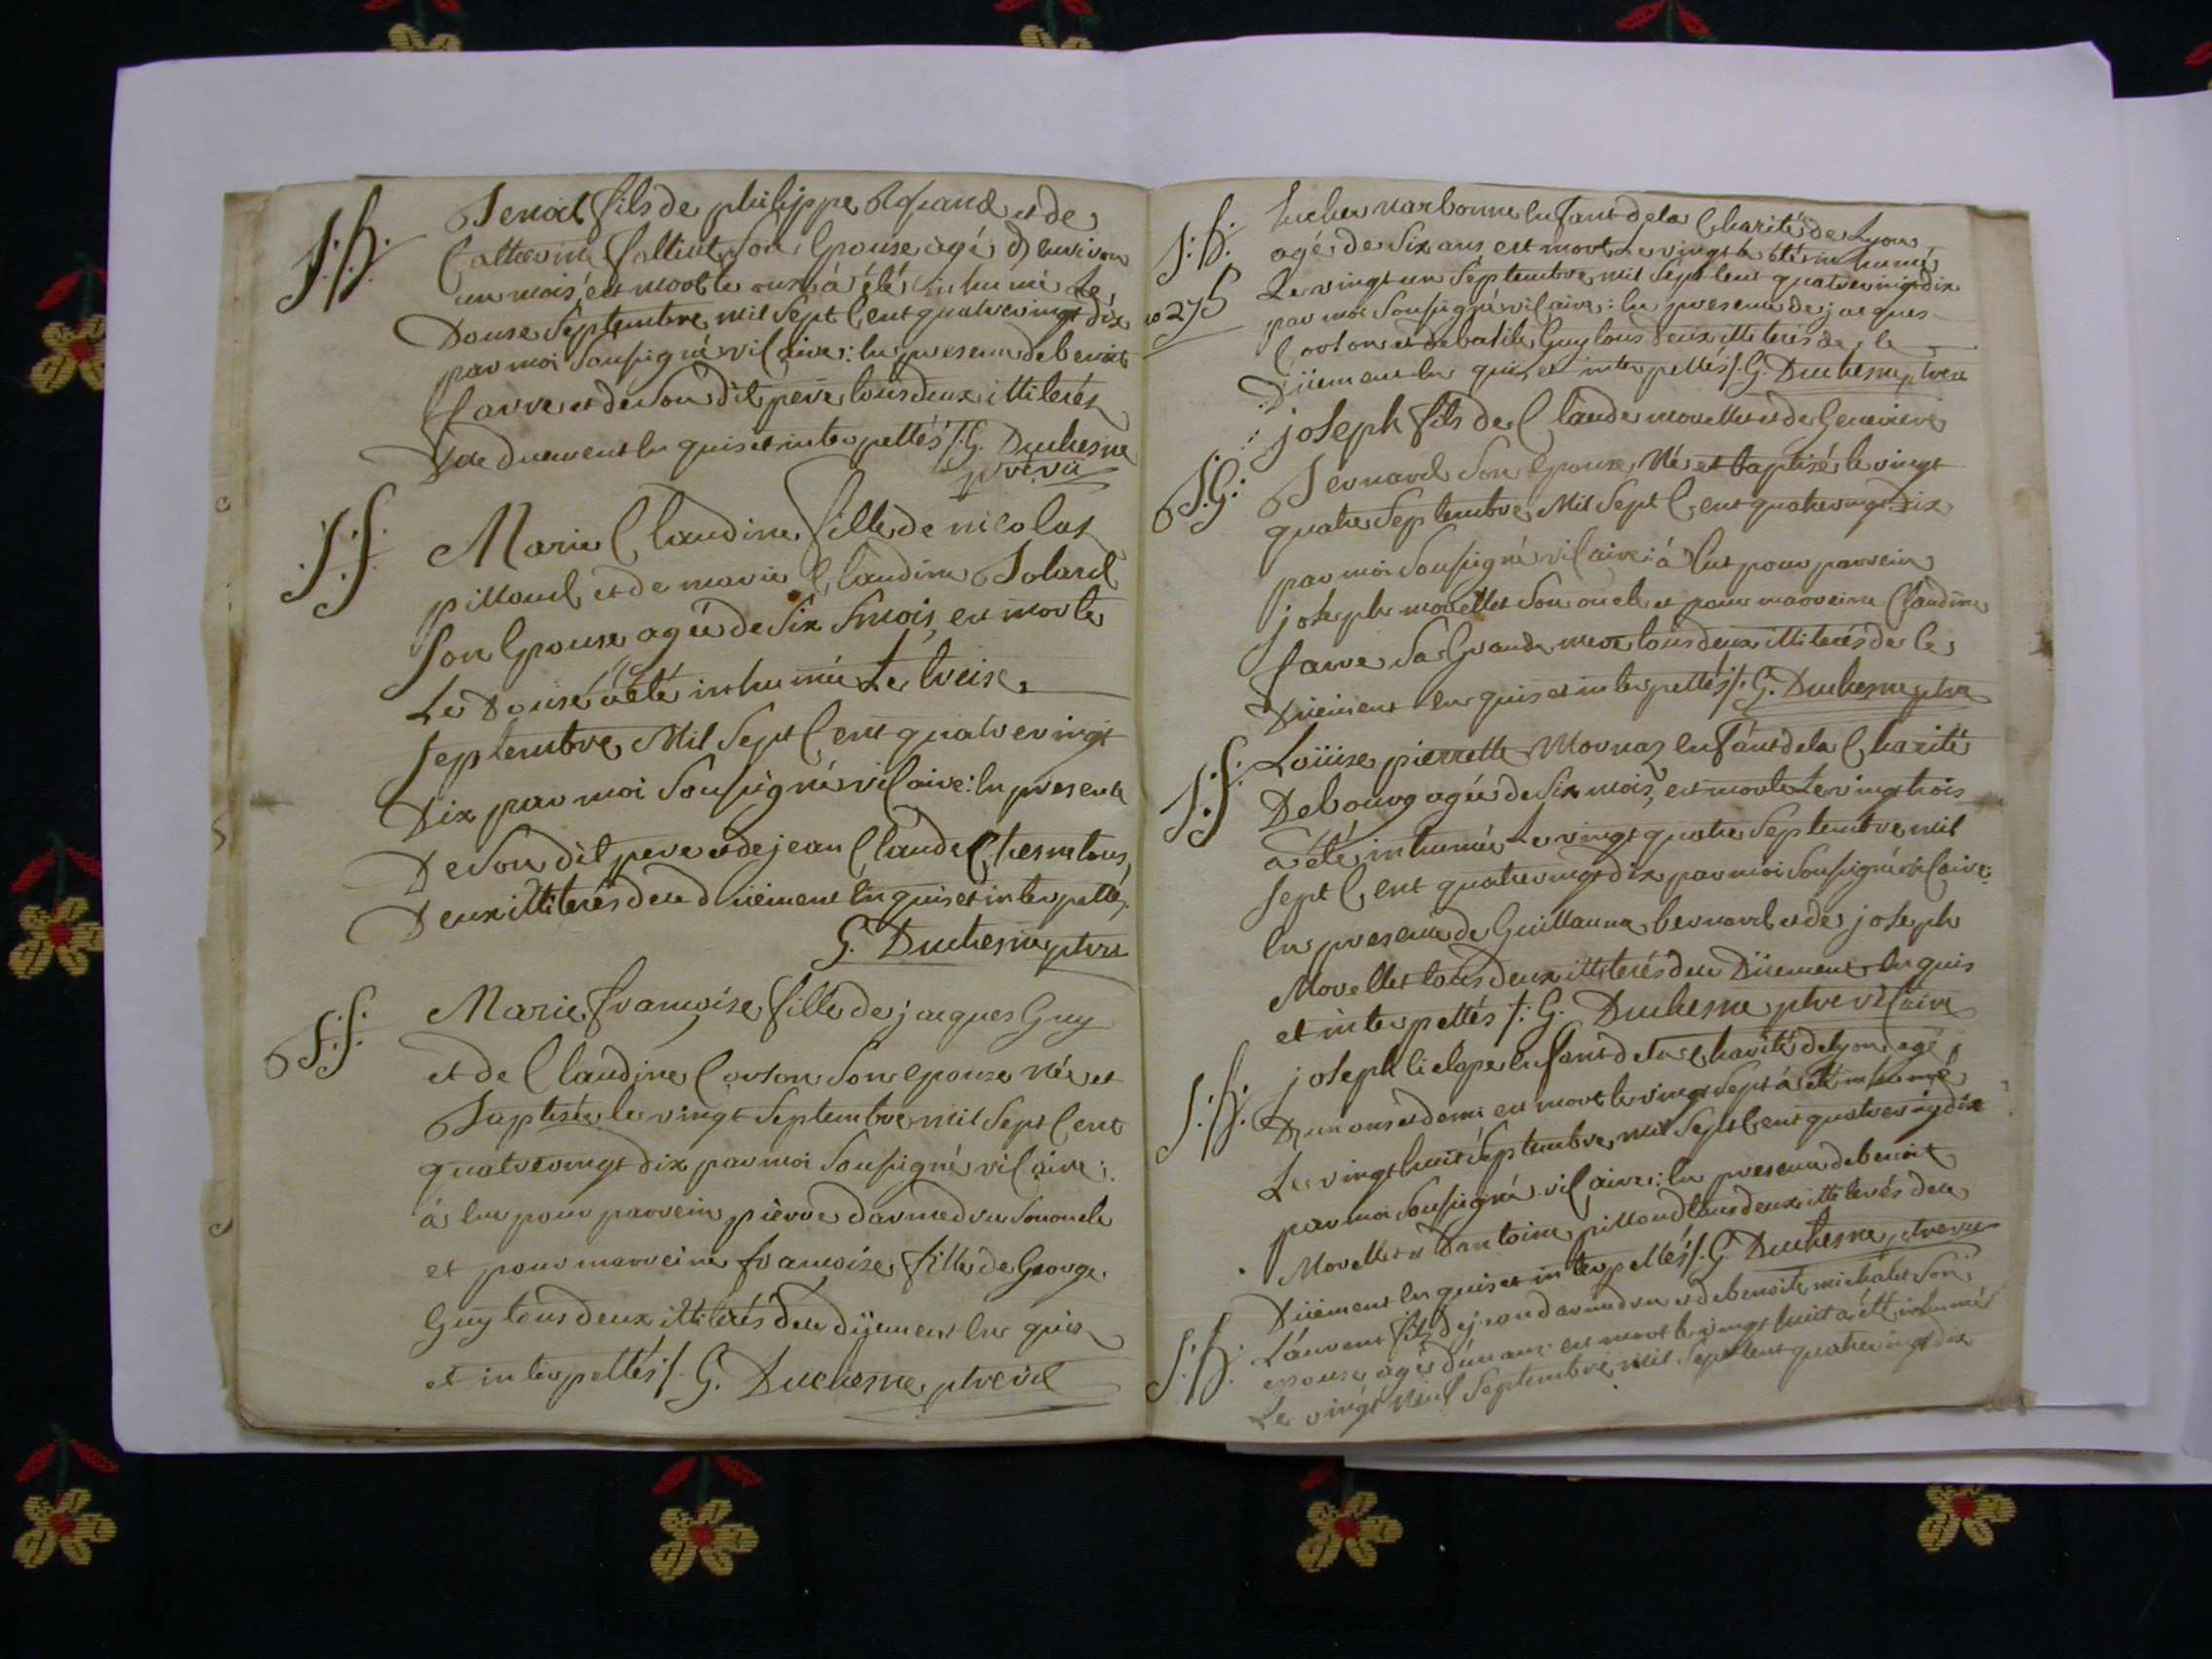 S: h:
Benoit fils de philippe et de
Catherine son Epouse agé d'environ
un mois est mort le onze á été inhumé Le
Douse Septembre mil Sept Cent quatrevingt dix
par moi Sousigné viCaire: En presence de benoit
favre et de Son dit pere tous deux illiterés
de duement En quis et interpellés /: G. Duchesne
S: f:
Marie Claudine fille de nicolas
pilloud et de marie Claudine Bolard
son Epouse agée de Six Smois, est morte
Le Douse á été inhumée Le treise
Septembre Mil Sept Cent quatrevingt
Dix par moi Sousigné viCaire: En presence
De Son dit pere et de jean Claude Chesne tous
Deux illiterés de ce düement En quis et interpellé,
G. Duchesne ptre
B S: f:
Marie francoise fille de jacques Guy
et de Claudine Corton Son epouse Née et
Baptisée le vingt Septembre mil Sept Cent
quatrevingt dix par moi Sousigné viCaire:
á Eu pour parrein pierre darmedru Son oncle
et pour marreine francoise fille de George
Guy tous deux illiterés de ce düement En quis
et interpellés /: G. Duchesne ptre vic
S: h:
narbonne Enfant de la Charité de Lyon
agé de Six ans est mort Le vingt á été inhumé
Le vingt un Septembre mil Sept Cent quatrevingt dix
275
par moi Sousigné viCaire: En presence de jacques
Corton et de batile Guy tous deux illiterés de ce
Düement En quis et interpellés /: G. Duchesne ptre
joseph fils de Claude morellet et de Genevieve
B S. G:
Bernard Son Epouse Né et baptisé le vingt
quatre Septembre Mil Sept Cent quatrevingt Dix
par moi Sousigné viCaire: á Eut pour parrein
joseph morellet Son oncle et pour marreine Claudine
favre Sa Grande mere tous deux illiterés de ce
Düement En quis et interpellés /: G. Duchesne ptre
S: f:
Loüise pierrette Mornaz Enfant de la Charité
De bourg agée de Six mois, est morte Le vingt trois
á été inhumée Le vingt quatre Septembre mil
Sept Cent quatrevingt dix par moi Sousigné viCaire:
En presence de Guillaume bernard et de joseph
Morellet tous deux illiterés de ce Düement En quis
et interpellés /: G. Duchesne ptre viCaire
S: h:
joseph Enfant de la Charité de lyon agé
D'un ans et demi est mort le vingt Sept á été inhumé
Le vingt huit Septembre mil Sept Cent quatrevingt dix
par moi Sousigné viCaire: En presence de benoit
Morellet et d'antoine pilloud tous deux illiterés de ce
Düement En quis et interpellés /: G Duchesne ptre vic
S: h:
Laurent fils de jean darmedru et de benoite michalet Son
epouse agé d'un ans: est mort le vingt huit á été inhumé
Le vingt neuf Septembre mil Sept Cent quatrevingt dix